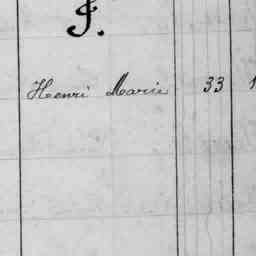 J.
Henri Marie 33 1